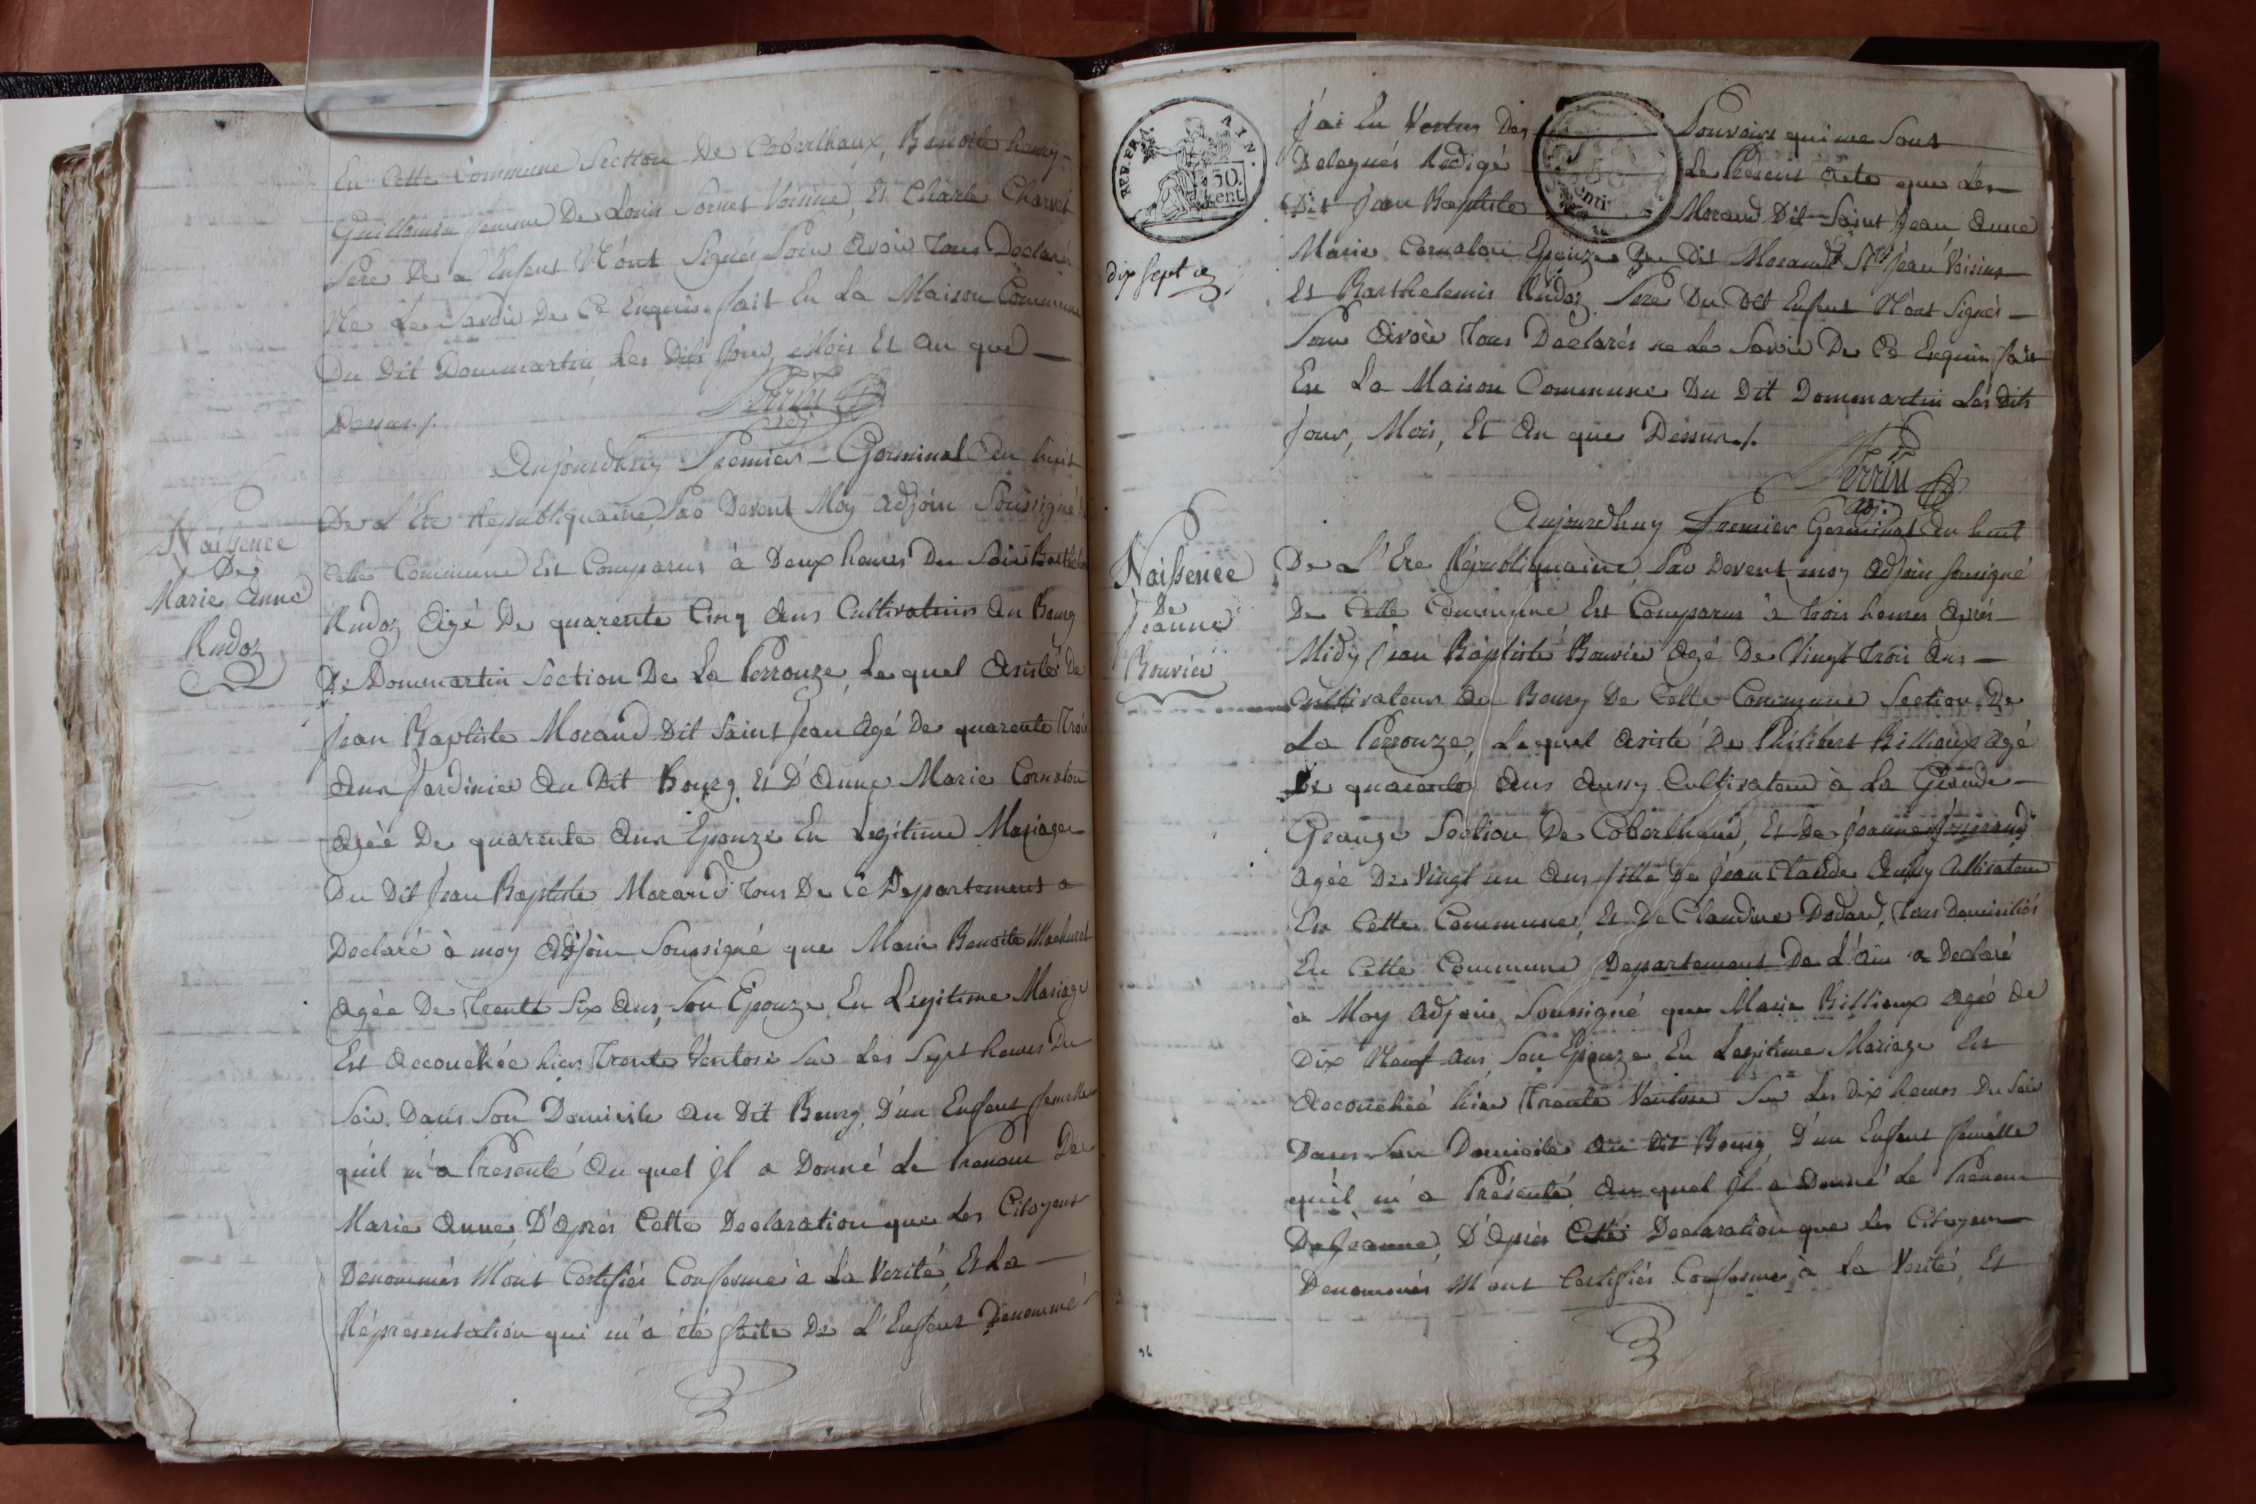 En Cette Commune Section De Coberthoux, Benoite
Guillemin femme De Louis Sornet Voisine, Et Charle Charvet
Pere De Enfent N'ont Signés Pour Avoir Tous Declaré
Ne Le Savoir De Ce Enquis fait En La Maison Commune
Du Dit Dommartin Les Dits Jour, Mois Et An que
Dessus ./.
Perrin
adj.
Naissence
De
Marie Anne
Rudoz
Aujourdhuy Premier Germinal An huit
De L'Ere Republiquaine, Par Devent Moy Adjoin Soussigné
Cette Commune Est Comparus à Deux heures Du Soir
Rudoz Agé De quarente Cinq Ans Cultivateur Au Bourg
De Dommartin Section De La Perrouze, Le quel Asisté De
Jean Baptiste Morand Dit Saint Jean Agé De quarente Trois
Ans Jardinier Au Dit Bourg, Et D'Anne Marie Cornaton
Agée De quarente Ans Epouze En Legitime Mariage
Du Dit Jean Baptiste Morand Tous De Ce Departement a
Declaré à moy Adjoin Soussigné que Marie Benoite
Agée De Trente Six Ans, Son Epouze En Legitime Mariage
Est Accouchée hier Trente Ventose Sur Les Sept heures Du
Soir, Dans Son Domicile Au Dit Bourg, D'un Enfent femelle
quil m'a Presenté Au quel Il a Donné Le Prenom De
Marie Anne, D'Après Cette Declaration que Les Citoyens
Denommés M'ont Certifiés Conforme à La Verité, Et La
Répresentation qui m'a été faite De L'Enfent Denommé
REP. FRA.
AIN.
50.
Cent
dix sept
J'ai En Vertus Des Pouvoirs qui me Sont
Delegués Redigé Le Présent Acte que Les
Dit Jean Baptiste Morand Dit Saint Jean Anne
Marie Cornaton Epouze Du Dit Morand St Jean Voisins
Et Barthelemis Rudoz Pere Du Dit Enfent N'ont Signés
Pour Avoir Tous Declarés ne Le Savoir De Ce Enquis fait
En La Maison Commune Du Dit Dommartin Les Dits
Jour, Mois, Et An que Dessus ./.
Perrin
adj.
Naissence
De
Jeanne
Bouvier
Aujourdhuy Premier Germinal An huit
De L'Ere Républiquaine, Par Devent moy Adjoin sousigné
De Cette Commune Est Comparus à trois heures Après
Midy Jean Baptiste Bouvier Agé De Vingt Trois Ans
Cultivateur Au Bourg De Cette Commune Section De
La Perrouze, Le quel Asisté De Philibert Billioux Agé
De quarente Ans Aussy Cultivateur à La Grande
Grange Section De Coberthoux, Et De Jeanne
Agée De Vingt un Ans fille De Jean Claude Aussy Cultivateur
En Cette Commune, Et De Claudine Dodard, Tous Domiciliés
En Cette Commune Departement De L'Ain a Declaré
à Moy Adjoin Soussigné que Marie Billioux Agée De
Dix Neuf Ans, Son Epouze En Legitime Mariage Est
Accouchée hier Trente Ventose Sur Les Dix heures Du Soir
Dans Son Domicile Au Dit Bourg, D'un Enfent femelle
quil m'a Présenté, Au quel Il a Donné Le Prenom
De Jeanne, D'Après Cette Declaration que Les Citoyens
Denommés M'ont Certifiés Conforme à La Verité, Et